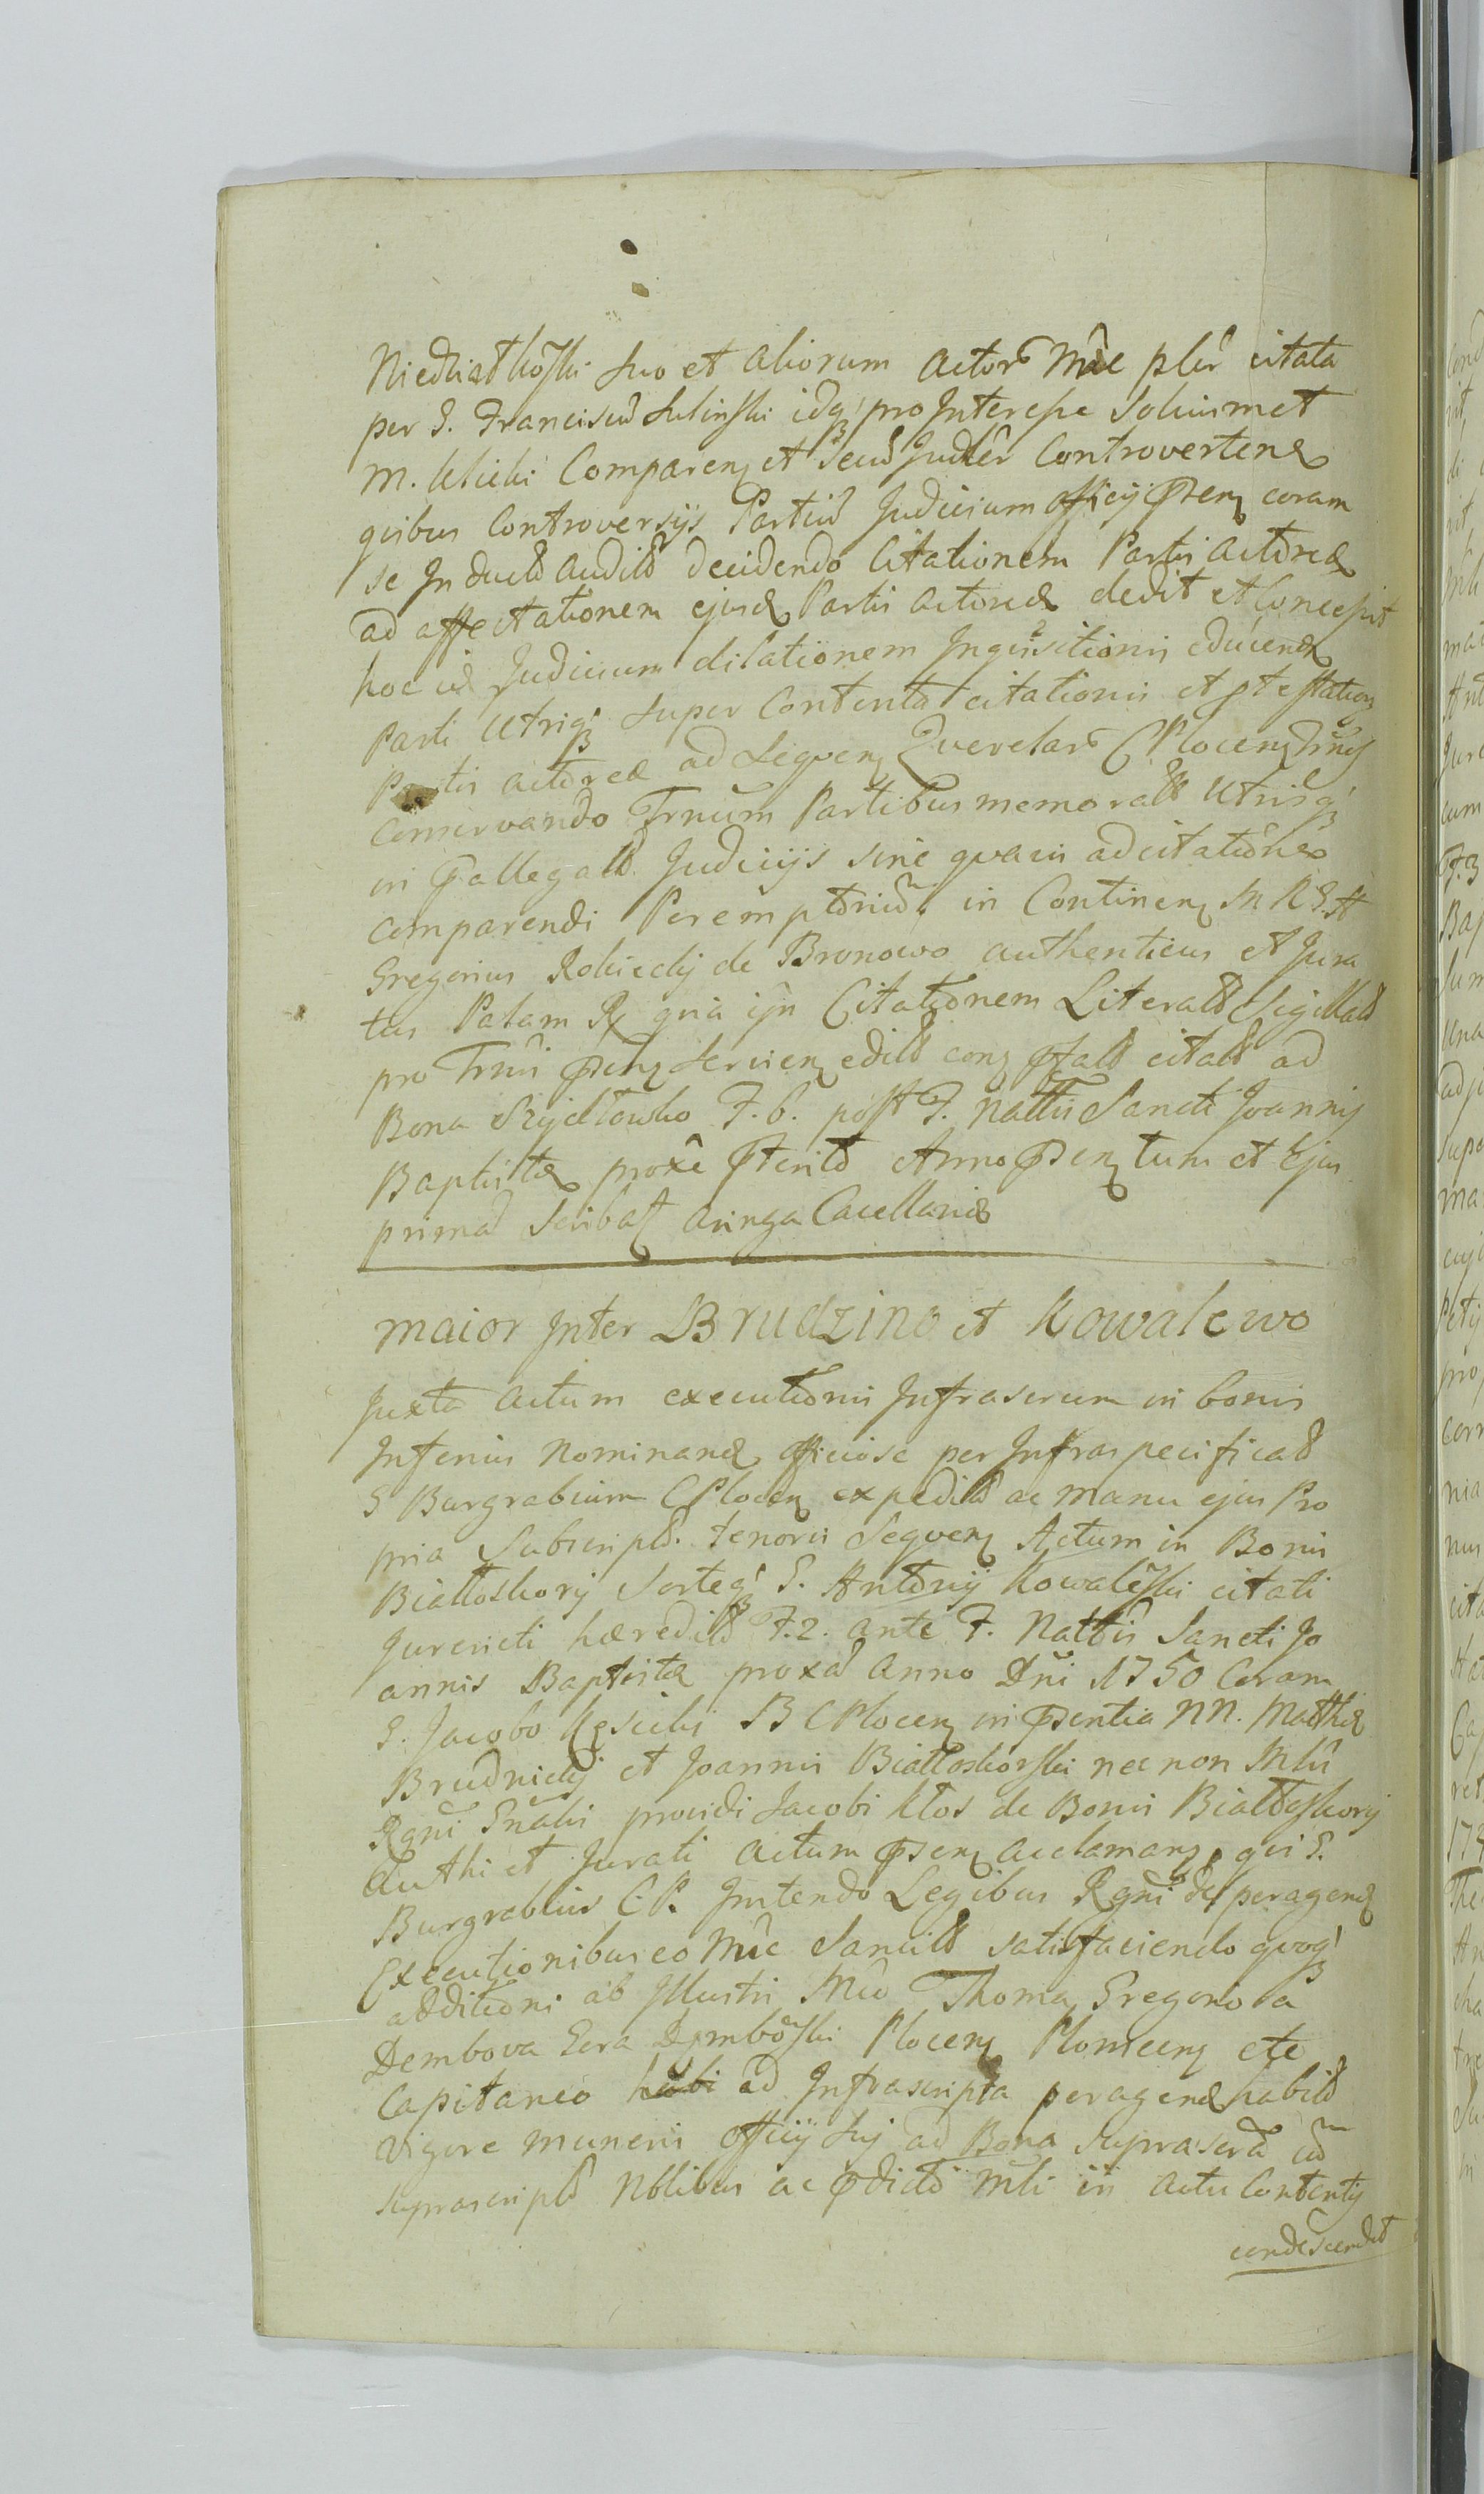 Niedziałkoski suo et aliorum actor Mne plr citata
per G. Franciscu Sulinski idq pro Interesse Soliusmet
M. Klicki Comparen et secu Judlr Controverten
quibus Controversijs Partiu Judicium Officij Psen coram
se Induct audit decidendo Citationem Partis actoreæ
ad affectationem ejusd Partis actoreæ dedit et Concessit
hoc id Judicium dilationem Inquisitionis educend
Parti Utriq super Contenta citationis et ptestation
Partis actoreæ ad Seqven Qverelar CPlocen Trnos
conservando Trnum Partibus memorat Utrisq
in Pallegat Judicijs sine qvavis ad citatione
comparendi Peremptoriu in Continen M R G. H
Gregorius Rokicky de Bronowo authenticus et Jura
tus Palam R quia ijn Citationem Literat Sigillat
pro Trni Psenz servien edit con Pfat citat ad
Bona Szydłowko F. 6. post F. Nattis Sancti Joannis
Baptistæ proxe Pterit Anno Psen tum et Ejus
prima Scribat aringa Cacellariæ
maior Inter Brudzino et Kowalewo
Juxta actum executionis Infrascrum in bonis
Inferius Nominand officiose per Infraspecificat
G Burgrabium CPlocen expedit ac manu ejus Pro
pria Subscript. tenoris Seqven Actum in Bonis
Białłoskory Sorteq G. Antonij Kowaleski citati
Jurevicti hæredit F. 2. ante F. Nattis Sancti Jo
annis Baptistæ proxa anno Dni 1750 Coram
G. Jacobo Kęsicki B CPlocen in Psentia NN. Matthiæ
Brudnicky et Joannis Białłoskorski nec non Mlis
Rgni Gnalis providi Jacobi Kłos de Bonis Białłoskory
Authi et Jurati actum Psen acclaman, qui G.
Burgrabius C. P. Initendo Legibus Rgni de peragend
Executionibus eo Mne Sancit satisfaciendo qvoq
additioni ab Illustri Mco Thoma Gregorio a
Dembova Gora Dembowski Plocen Plonscen etc
Capitaneo ad Infrascripta peragend habit
Vigore muneris officij Sui ad Bona suprascra cu
suprascript Nblibus ac Pdicto Mli in actu Contentis
condescendit